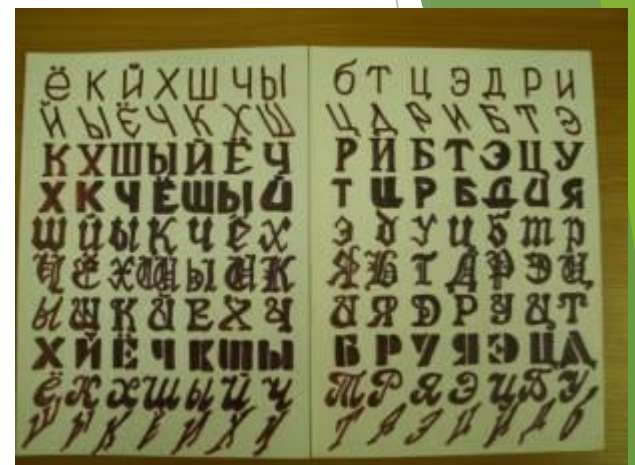 Ё К Й Х Ш Ч Ы
Й Ы Ё Ч К Х Ш
К Х Ш Ы Й Ё Ч
Х К Ч Ё Ш Ы Й
Ш Й Ы К Ч Ё Х
Ч Ё Х Ш Ы Й К
Ы Ш К Й Ё Х Ч
Х Й Ё Ч К Ш Ы
Ё К Х Ш Ы Й Ч
Ш Ы К Ё Й Х Ч
б Т Ц Э Д Р И
Ц Д Р И Б Т Э
Р И Б Т Э Ц У
Т Ц Р Б Д И Я
э д у ц б т р
Я Б Т Д Р Э Ц
И Я Д Р У Т
Б Р У Я Э Ц Д
Т Р Я Э Ц Б У
Т Я Э Ц Д б